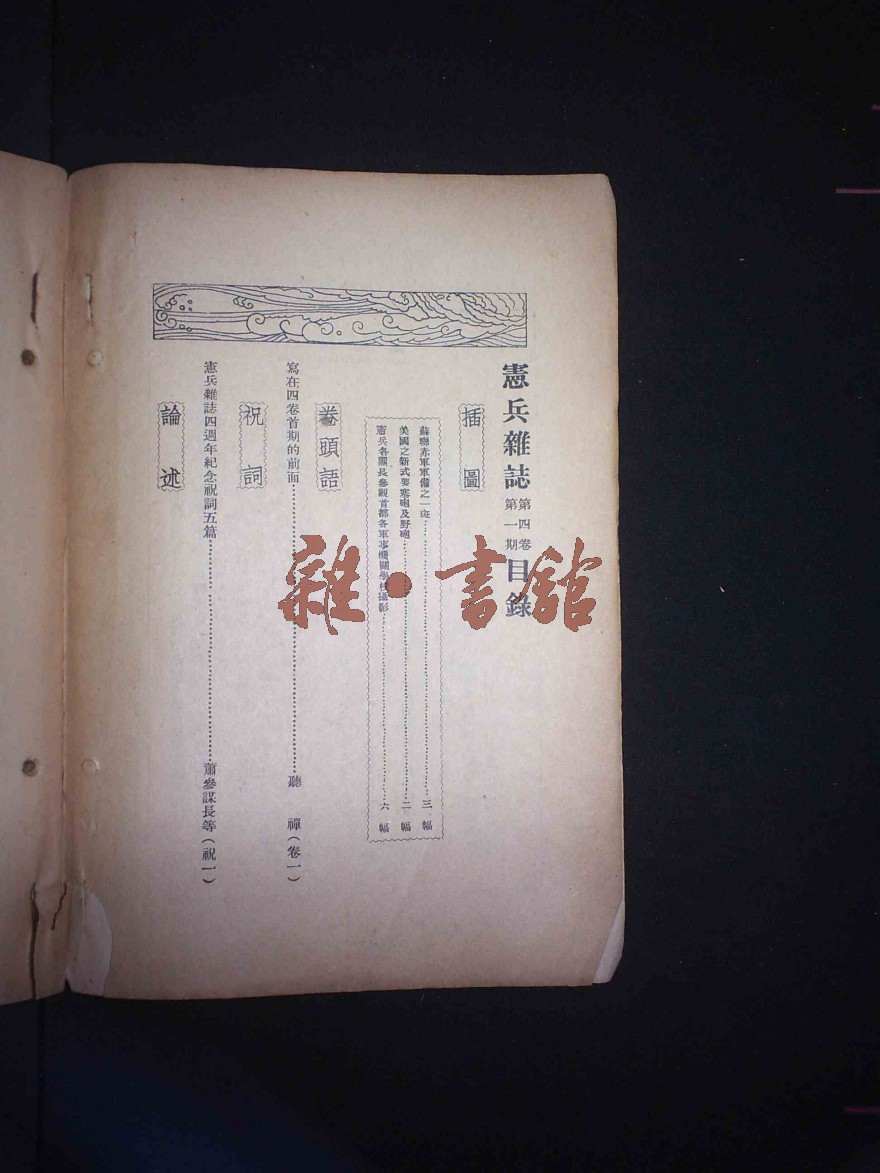 憲兵雜誌 第四卷 第一期 目錄
插圖
蘇聯赤軍軍備之一斑……三幅
美國之新式要塞砲及野砲……二幅
憲兵各團長參觀首都各軍事機關學校攝影……六幅
卷頭語
寫在四卷首期的前面……聽禪(卷一)
祝詞
憲兵雜誌四週年紀念祝詞五篇……蕭參謀長等(祝一)
論述
雜·書館